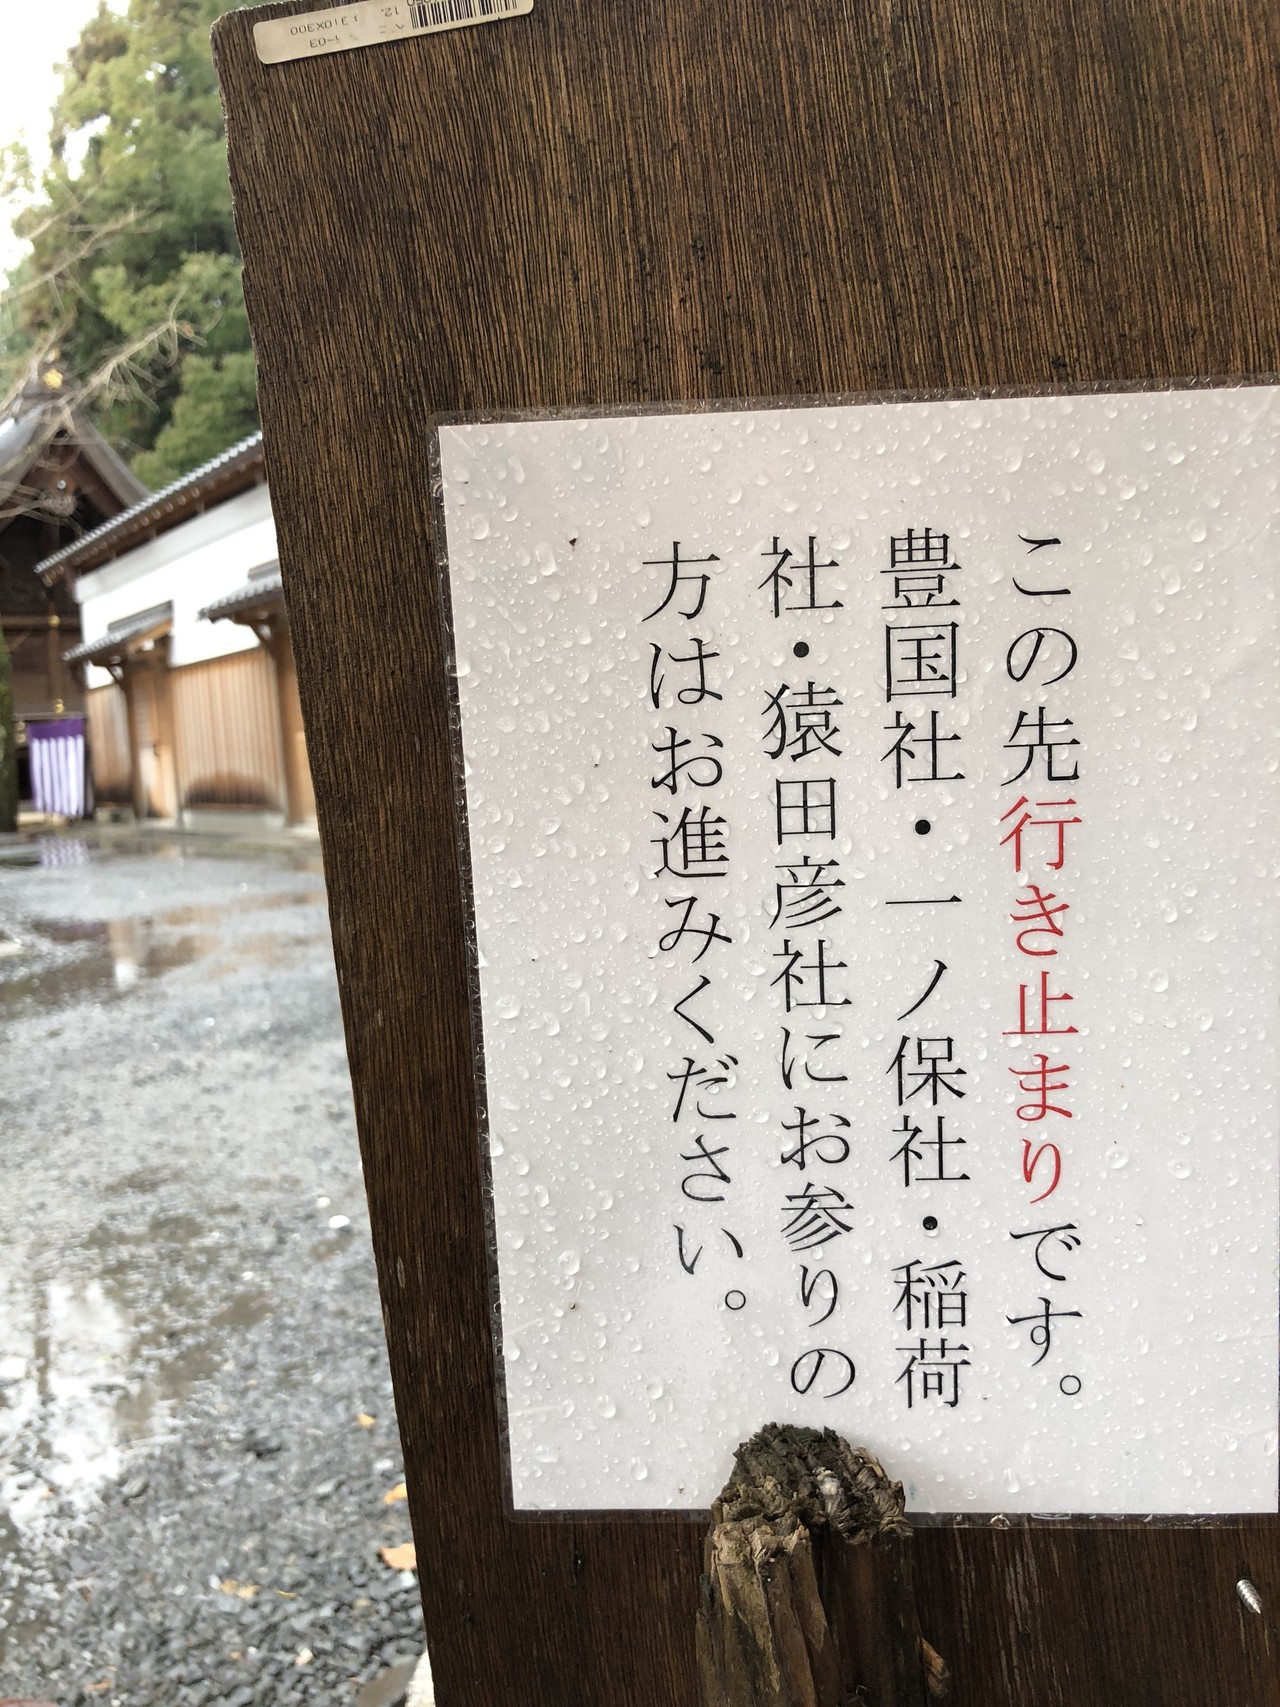 この先行き止まりです。
豊国社・一ノ保社・稲荷
社・猿田彦社にお参りの
方はお進みください。